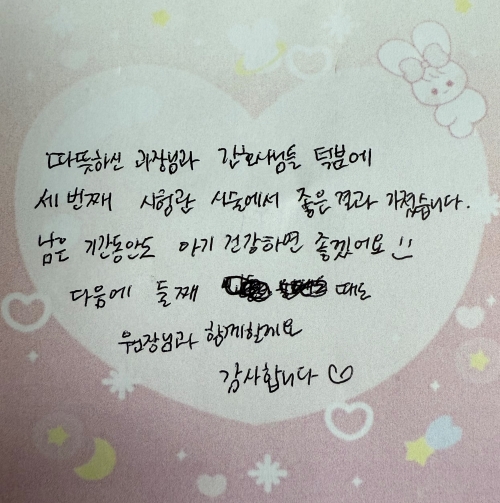 따뜻하신 과장님과 간호사님들 덕분에
세번째 시험관 시술에서 좋은 결과 가졌습니다.
남은 기간동안도 아기 건강하면 좋겠어요
다음에 둘째 때도
원장님과 함께할게요
감사합니다 ♡